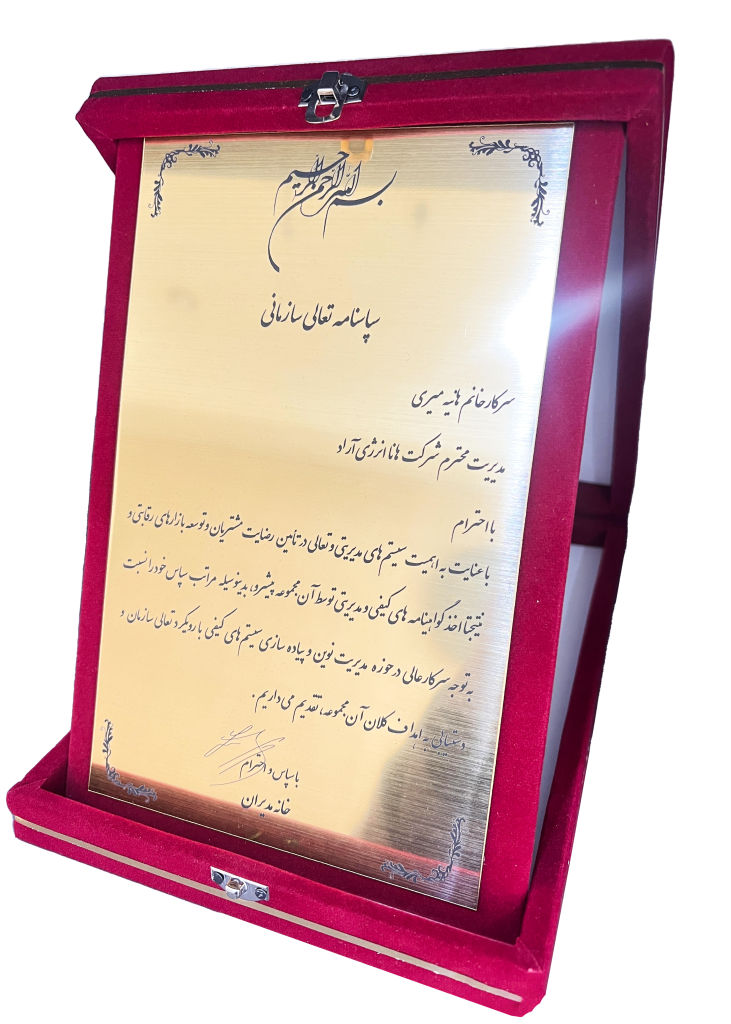 بسم الله الرحمن الرحیم
سپاسنامه تعالی سازمانی
سرکار خانم هانیه میری
مدیریت محترم شرکت هانا انرژی آراد
با احترام
با عنایت به اهمیت سیستم های مدیریتی و تعالی در تأمین رضایت مشتریان و توسعه بازارهای رقابتی و
نتیجتا اخذ گواهینامه های کیفی و مدیریتی توسط آن مجموعه پیشرو، بدینوسیله مراتب سپاس خود را نسبت
به توجه سرکار عالی در حوزه مدیریت نوین و پیاده سازی سیستم های کیفی با رویکرد تعالی سازمان و
دستیابی به اهداف کلان آن مجموعه، تقدیم می داریم.
با سپاس و احترام
خانه مدیران